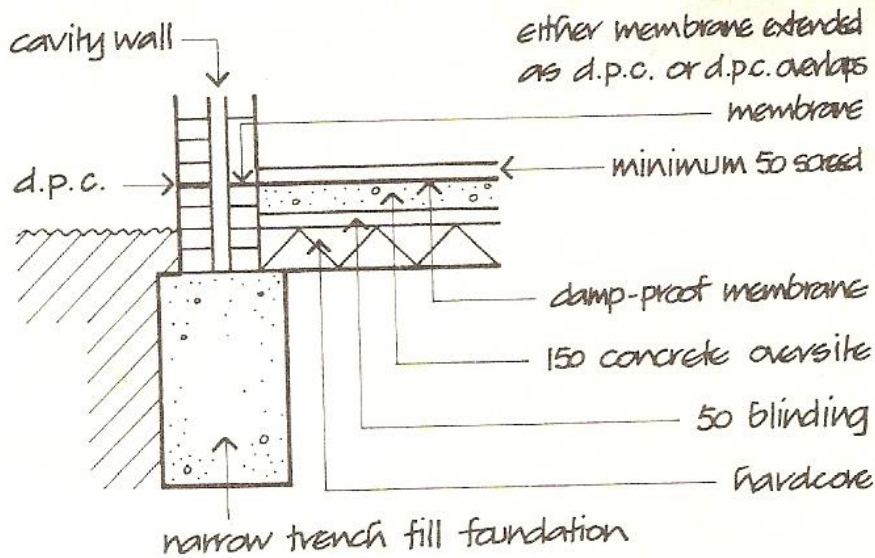 cavity wall
either membrane extended
as d.p.c. or d.p.c. overlaps
membrane
minimum 50 screed
d.p.c.
damp-proof membrane
150 concrete oversite
50 blinding
hardcore
narrow trench fill foundation